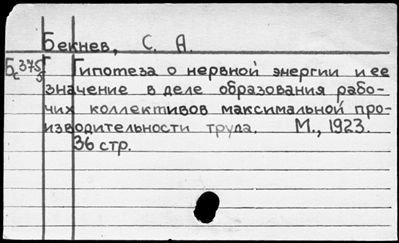 Бекнев, С. А.
Бс 375/3 Гипотеза о нервной энергии и ее
значение в деле образования рабо-
чих коллективов максимальной про-
изводительности труда. М., 1923.
36 стр.